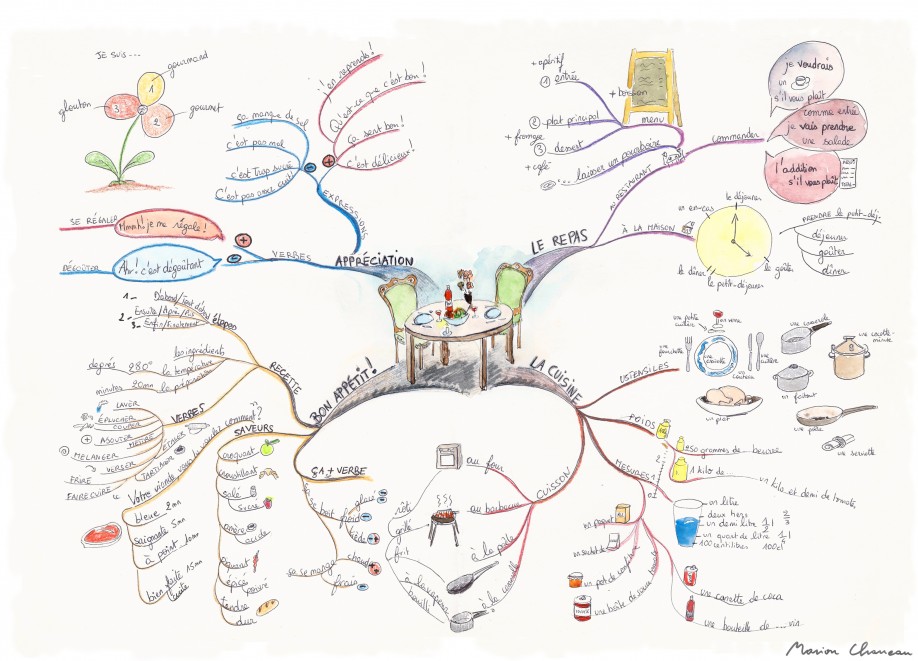 JE SUIS...
gourmand
glouton
gourmet
1
2
3
SE RÉGALER
Mmmh! je me régale!
DÉGOÛTER
Ah! c'est dégoûtant
VERBES
APPRÉCIATION
EXPRESSIONS
ça manque de sel
c'est pas mal
c'est trop sucré
C'est pas assez cuit!
j'en reprends!
Qu'est-ce que c'est bon!
ça sent bon!
c'est délicieux!
LE REPAS
AU RESTAURANT
menu
+ apéritif
1 entrée
+ boisson
2 plat principal
+ fromage
3 dessert
+ café
laisser un pourboire
commander
je voudrais
un
s'il vous plaît
comme entrée
je vais prendre
une salade
l'addition
s'il vous plaît
À LA MAISON
un en-cas
le déjeuner
le goûter
le petit-déjeuner
le dîner
PRENDRE le petit-déj-
déjeuner
goûter
dîner
BON APPÉTIT!
RECETTE
étapes
1- D'abord/Tout d'abord
2- Ensuite/Après/Puis
3- Enfin/Finalement
les ingrédients
degrés 280° la température
minutes 20mn la préparation
VERBES
LAVER
ÉPLUCHER
COUPER
AJOUTER
MÉLANGER
VERSER
FRIRE
FAIRE CUIRE
BEURRE
ÉTALER
TARTINER
Votre viande vous la voulez comment?
bleue 2mn
saignante 5mn
à point 10mn
bien cuite 15mn
SAVEURS
croquant
croustillant
salé
sucré
amère
acide
épicé
poivré
tendre
dur
ÇA + VERBE
ça se boit
glacé
froid
tiède
chaud
ça se mange
frais
LA CUISINE
CUISSON
au four
rôti
au barbecue
grillé
frit
à la poêle
à la vapeur
bouilli
USTENSILES
une petite cuillère
un verre
une fourchette
une assiette
un couteau
une cuillère
un plat
une casserole
une cocotte-minute
un faitout
une poêle
une serviette
POIDS
250 grammes de... beurre
1 kilo de...
un kilo et demi de tomates
MESURES
un litre
deux tiers 2/3
un demi litre
un quart de litre
100 centilitres 100cl
un paquet
un sachet de
un pot de confiture
une canette de coca
une bouteille de.... vin
Marion Charreau